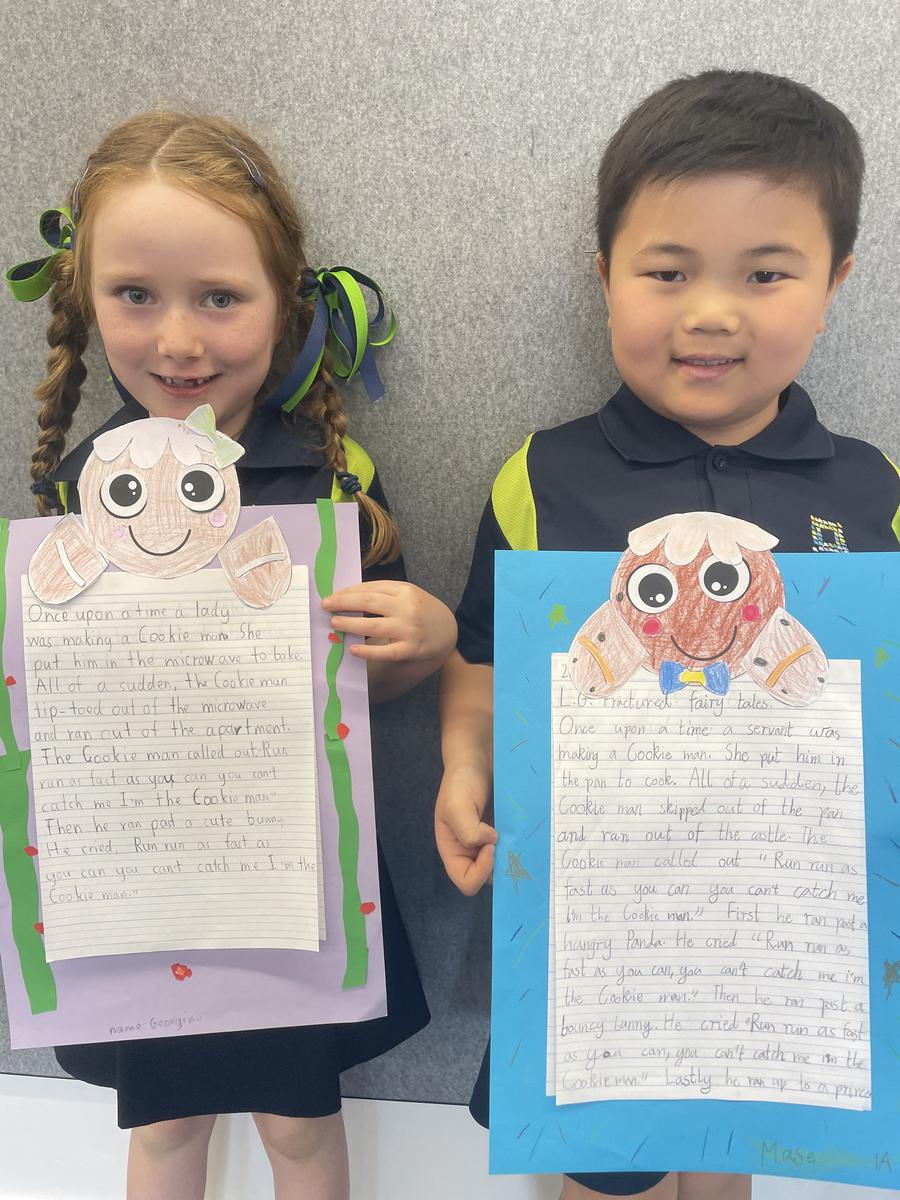 Once upon a time a lady
was making a Cookie man. She
put him in the microwave to bake.
All of a sudden, the Cookie man
tip-toed out of the microwave
and ran out of the apartment.
The Cookie man called out. Run
run as fast as you can you can't
catch me I'm the Cookie man"
Then he ran past a cute bunny.
He cried, Run run as fast as
you can you can't catch me I'm the
Cookie man."
name: Georgina
2
L.O: Fractured fairy tales.
Once upon a time a servant was
making a Cookie man. She put him in
the pan to cook. All of a sudden, the
Cookie man skipped out of the pan
and ran out of the castle. The
Cookie man called out "Run run as
fast as you can you can't catch me
i'm the Cookie man." First he ran past a
hungry Panda. He cried "Run run as
fast as you can, you can't catch me i'm
the Cookie man." Then he ran past a
bouncy bunny. He cried "Run run as fast
as you can, you can't catch me i'm the
Cookie man." Lastly he ran up to a prince
Mase 1A